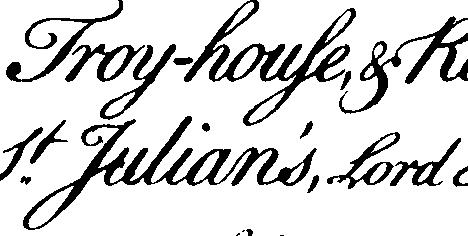 Troy-houſe, & K
St. Julian's, Lord